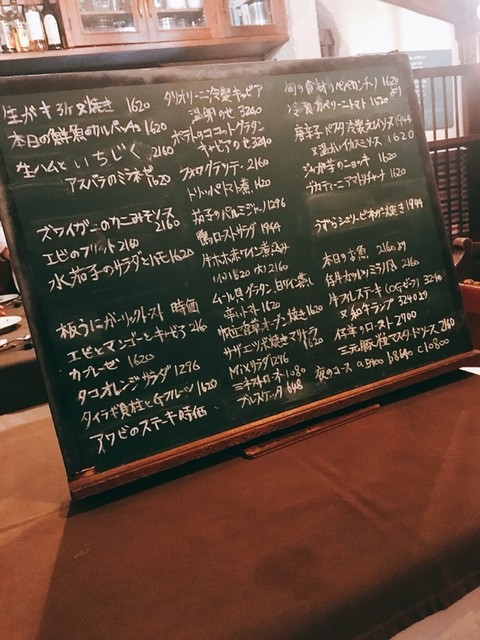 生ガキ 3ケ 又 焼き 1620
本日の鮮魚のカルパッチョ 1620
生ハムといちじく 2160
アスパラのミラネーゼ 1620
ズワイガニのカニみそソース 2160
エビのフリット 2160
水茄子のサラダとハモ 1620
板うにガーリックトースト 時価
エビとマンゴーとキャビア 2160
カプレーゼ 1620
タコオレンジサラダ 1296
タイラギ貝柱とGフルーツ 1620
アワビのステーキ 時価
タリオリーニ冷製キャビア
温卵のせ 3240
ポテトココットグラタン
キャビアのせ 3240
フォアグラソテー 2160
トリッパトマト煮 1620
茄子のパルミジャーノ 1296
鴨ローストサラダ 1944
牛ホホ赤ワイン煮込み
小 1620 大 2160
ムール貝グラタン 白ワイン蒸し
トマト 1620
帆立香草オーブン焼き 1620
サザエ 1620
MIXサラダ 1296
ミネストローネ 1080
ブルスケッタ 648
旬の食材のペペロンチーノ 1620より
冷製カペリーニトマト 1620
唐辛子パスタ冷製 1944
又 温かい 1620
じゃが芋のニョッキ 1620
ブカティーニアマトリチャーナ 1620
うずらシェリービネガー焼き 1944
本日のお魚 2160より
仔牛カツレツミラノ風 2160
牛フィレステーキ 3240
又 3240より
仔羊ロースト 2700
三元豚 粒マスタードソース 2160
夜のコース a 5400 b 8640 c 10800